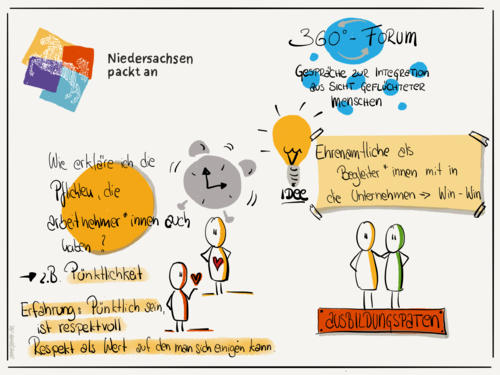 Niedersachsen
packt an
360°-FORUM
GESPRÄCHE ZUR INTEGRATION
AUS SICHT GEFLÜCHTETER
MENSCHEN
IDEE
Ehrenamtliche als
Begleiter*innen mit in
die Unternehmen → Win-Win
Wie erkläre ich die
Pflichten, die
Arbeitnehmer*innen auch
haben?
→ z.B. Pünktlichkeit
Erfahrung: Pünktlich sein,
ist respektvoll
Respekt als Wert auf den man sich einigen kann.
AUSBILDUNGSPATEN